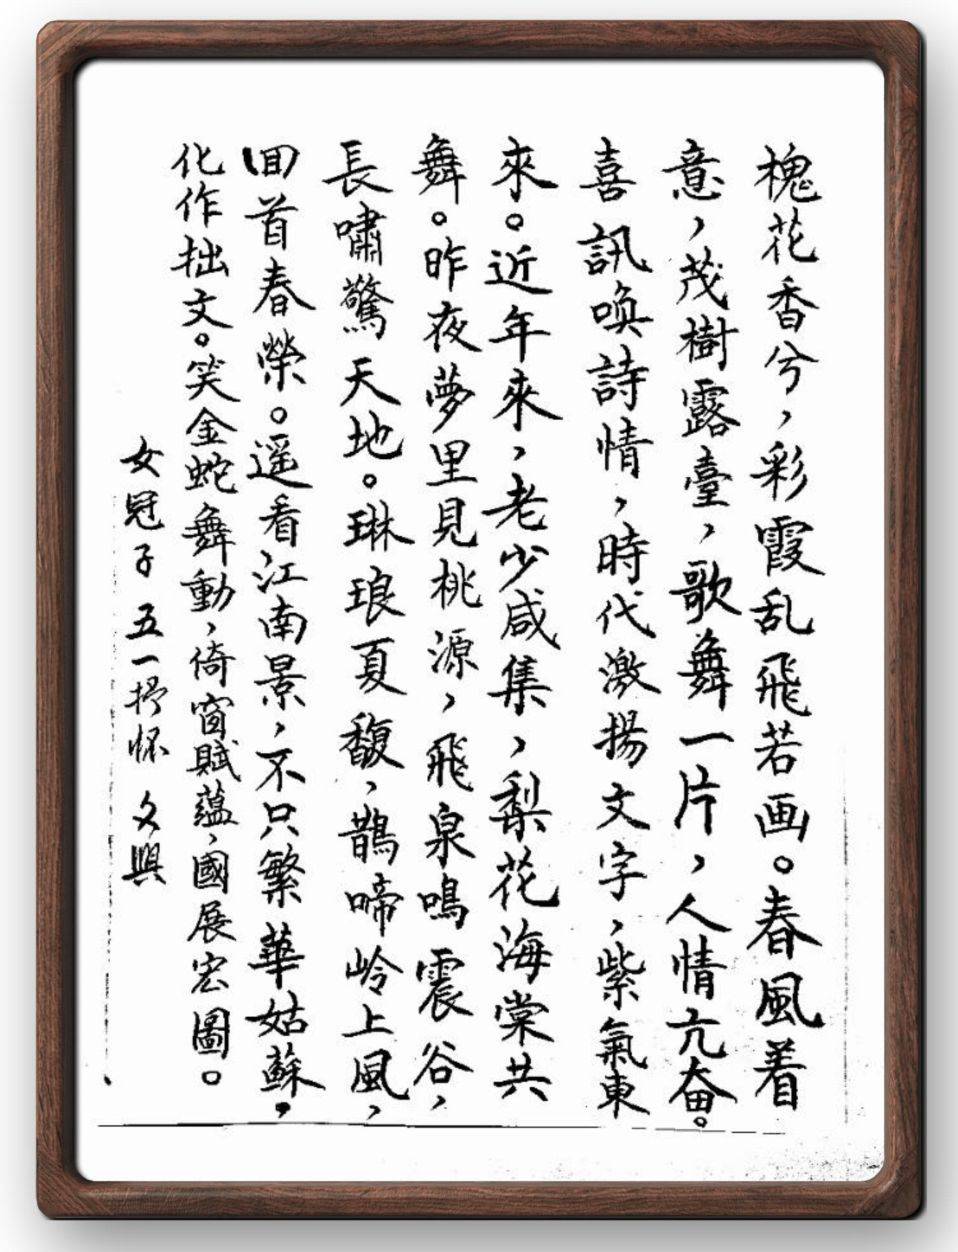 槐花香兮，彩霞乱飛若画。春風着
意，茂樹露臺，歌舞一片，人情亢奋。
喜訊唤詩情，時代激揚文字，紫氣東
來。近年來，老少咸集，梨花海棠共
舞。昨夜夢里見桃源，飛泉鳴震谷，
長嘯驚天地。琳琅夏馥，鵲啼岭上風，
回首春榮。遥看江南景，不只繁華姑蘇。
化作拙文。笑金蛇舞動，倚窗賦蘊，國展宏圖。
女冠子 五一抒怀 文興